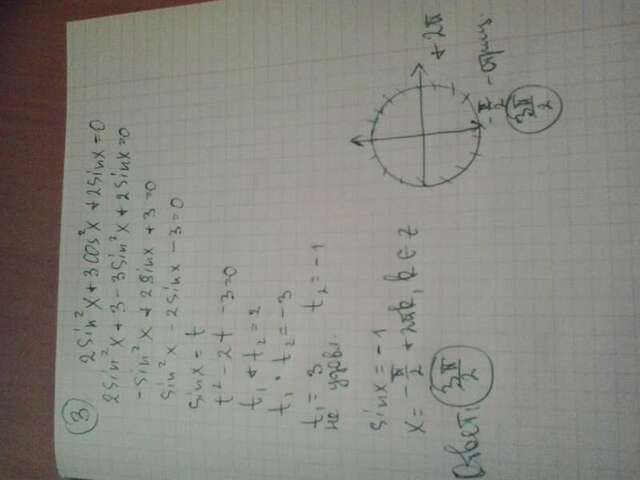 ③ 2sin²x+3cos²x+2sinx=0
2sin²x+3-3sin²x+2sinx=0
-sin²x+2sinx+3=0
sin²x-2sinx-3=0
sinx=t
t²-2t-3=0
t₁+t₂=2
t₁·t₂=-3
t₁=3 t₂=-1
не удовл.
sinx=-1
x=-π/2+2πk, k∈Z
Ответ: 3π/2
+2π
-π/2 - отриц.
3π/2